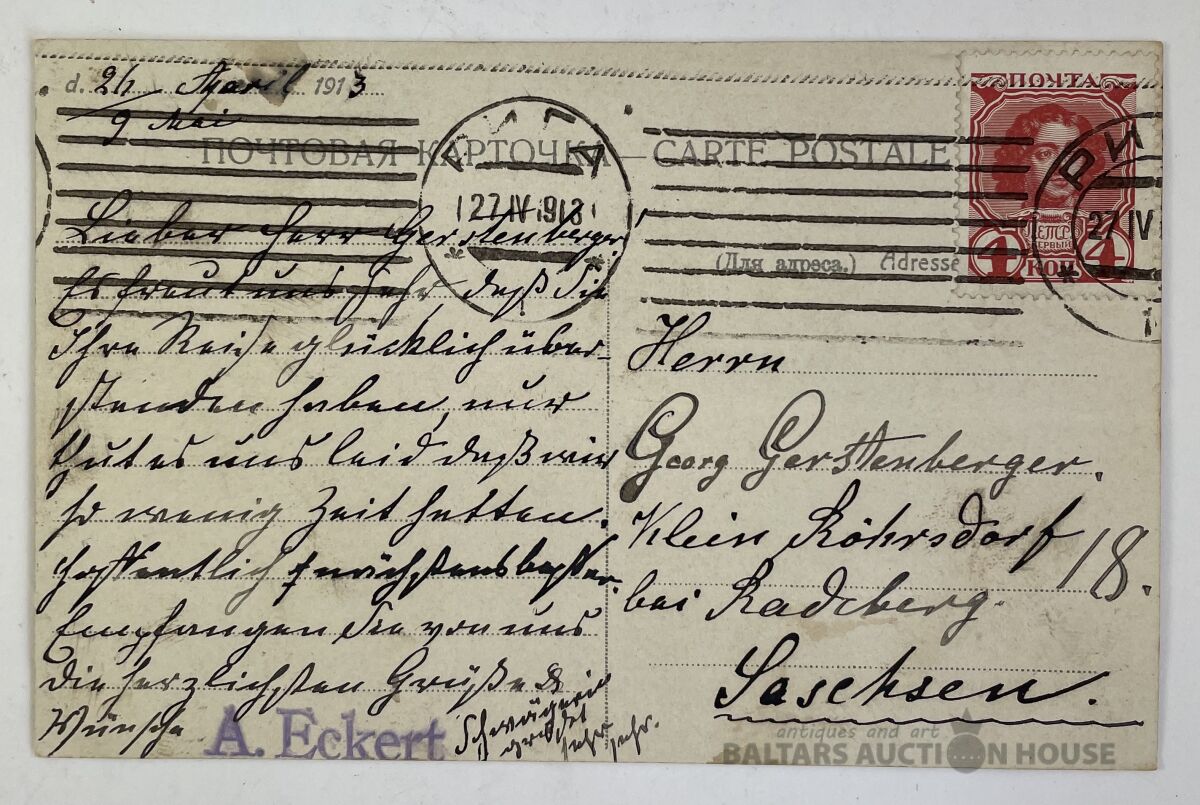 d. 26 April 1913
9 Mai
ПОЧТОВАЯ КАРТОЧКА — CARTE POSTALE
РИГА
27 IV 1913
ПОЧТА
ПЕТРЪ ПЕРВЫЙ
4 КОП. 4
РИ
27 IV
(Для адреса.) Adresse
Lieber Herr Gerstenberger
Es freut uns sehr daß Sie
Ihre Reise glücklich über-
standen haben, nur
thut es uns leid daß wir
so wenig Zeit hatten.
hoffentlich nächstens besser.
Empfangen Sie von uns
die herzlichsten Grüße &
Wünsche
A. Eckert
Schwägerin
grüßt
sehr sehr.
Herrn
Georg Gerstenberger.
Klein Röhrsdorf 18.
bei Radeberg.
Sachsen.
antiques and art
BALTARS AUCTION HOUSE